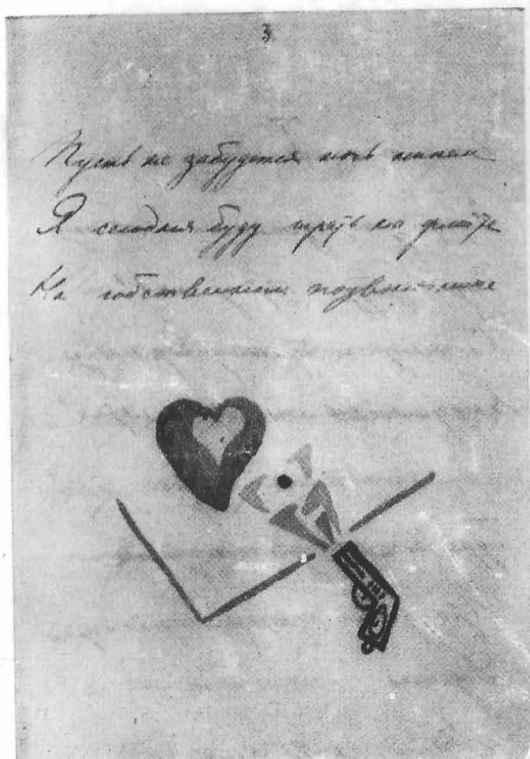 3
Пусть не забудется ночь никем
Я сегодня буду играть на флейте
На собственном позвоночнике